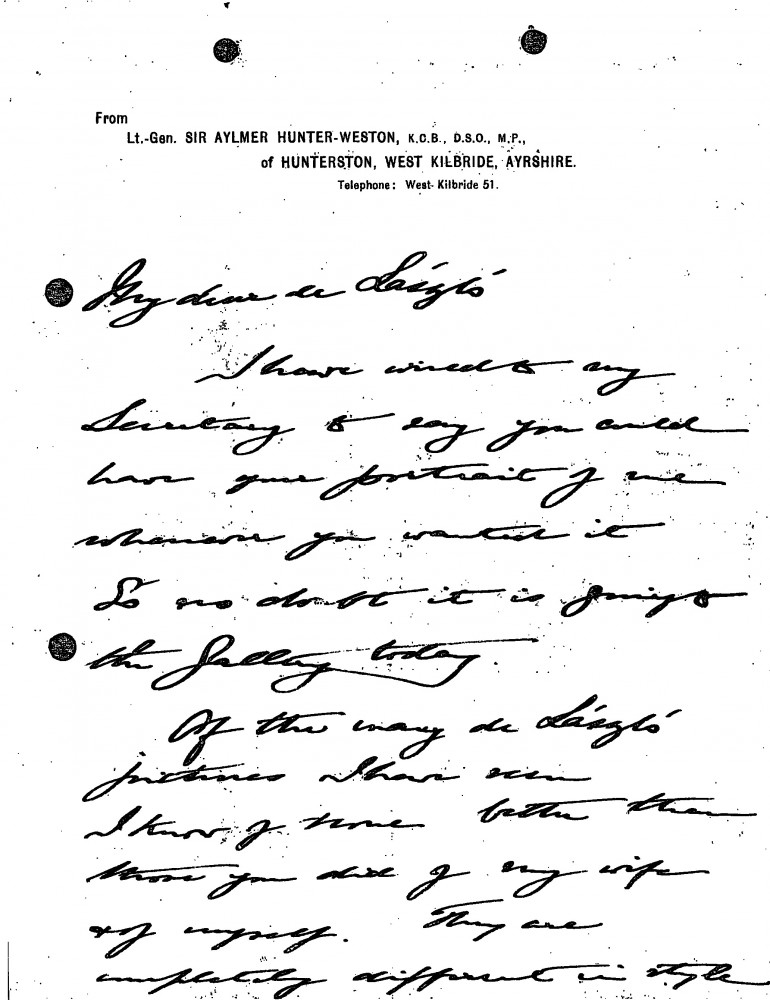 From
Lt.-Gen. SIR AYLMER HUNTER-WESTON, K.C.B., D.S.O., M.P.,
of HUNTERSTON, WEST KILBRIDE, AYRSHIRE.
Telephone: West-Kilbride 51.
My dear de László
I have wired to my
Secretary to say you could
have your portrait of me
whenever you wanted it
So no doubt it is going to
the Gallery today.
Of the many de László
pictures I have seen
I know of none better than
those you did of my wife
& of myself. They are
completely different in style